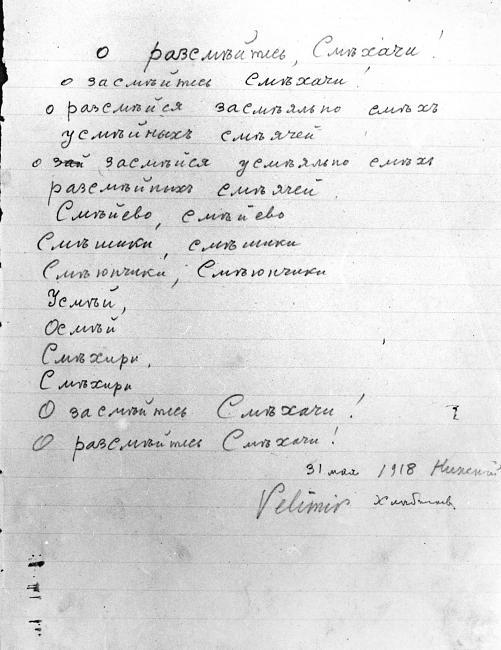 О разсмѣйтесь, Смѣхачи!
о засмѣйтесь Смѣхачи!
о разсмѣйся засмѣяльно смѣхъ
усмѣйныхъ смѣячей
о зай засмѣйся усмѣяльно смѣхъ
разсмѣйныхъ смѣячей.
Смѣйево, смѣйево
Смѣшики, смѣшики
Смѣюнчики, Смѣюнчики
Усмѣй,
Осмѣй
Смѣхири,
Смѣхири
О засмѣйтесь Смѣхачи!
О разсмѣйтесь Смѣхачи!
31 мая 1918
Velimir Хлѣбников.